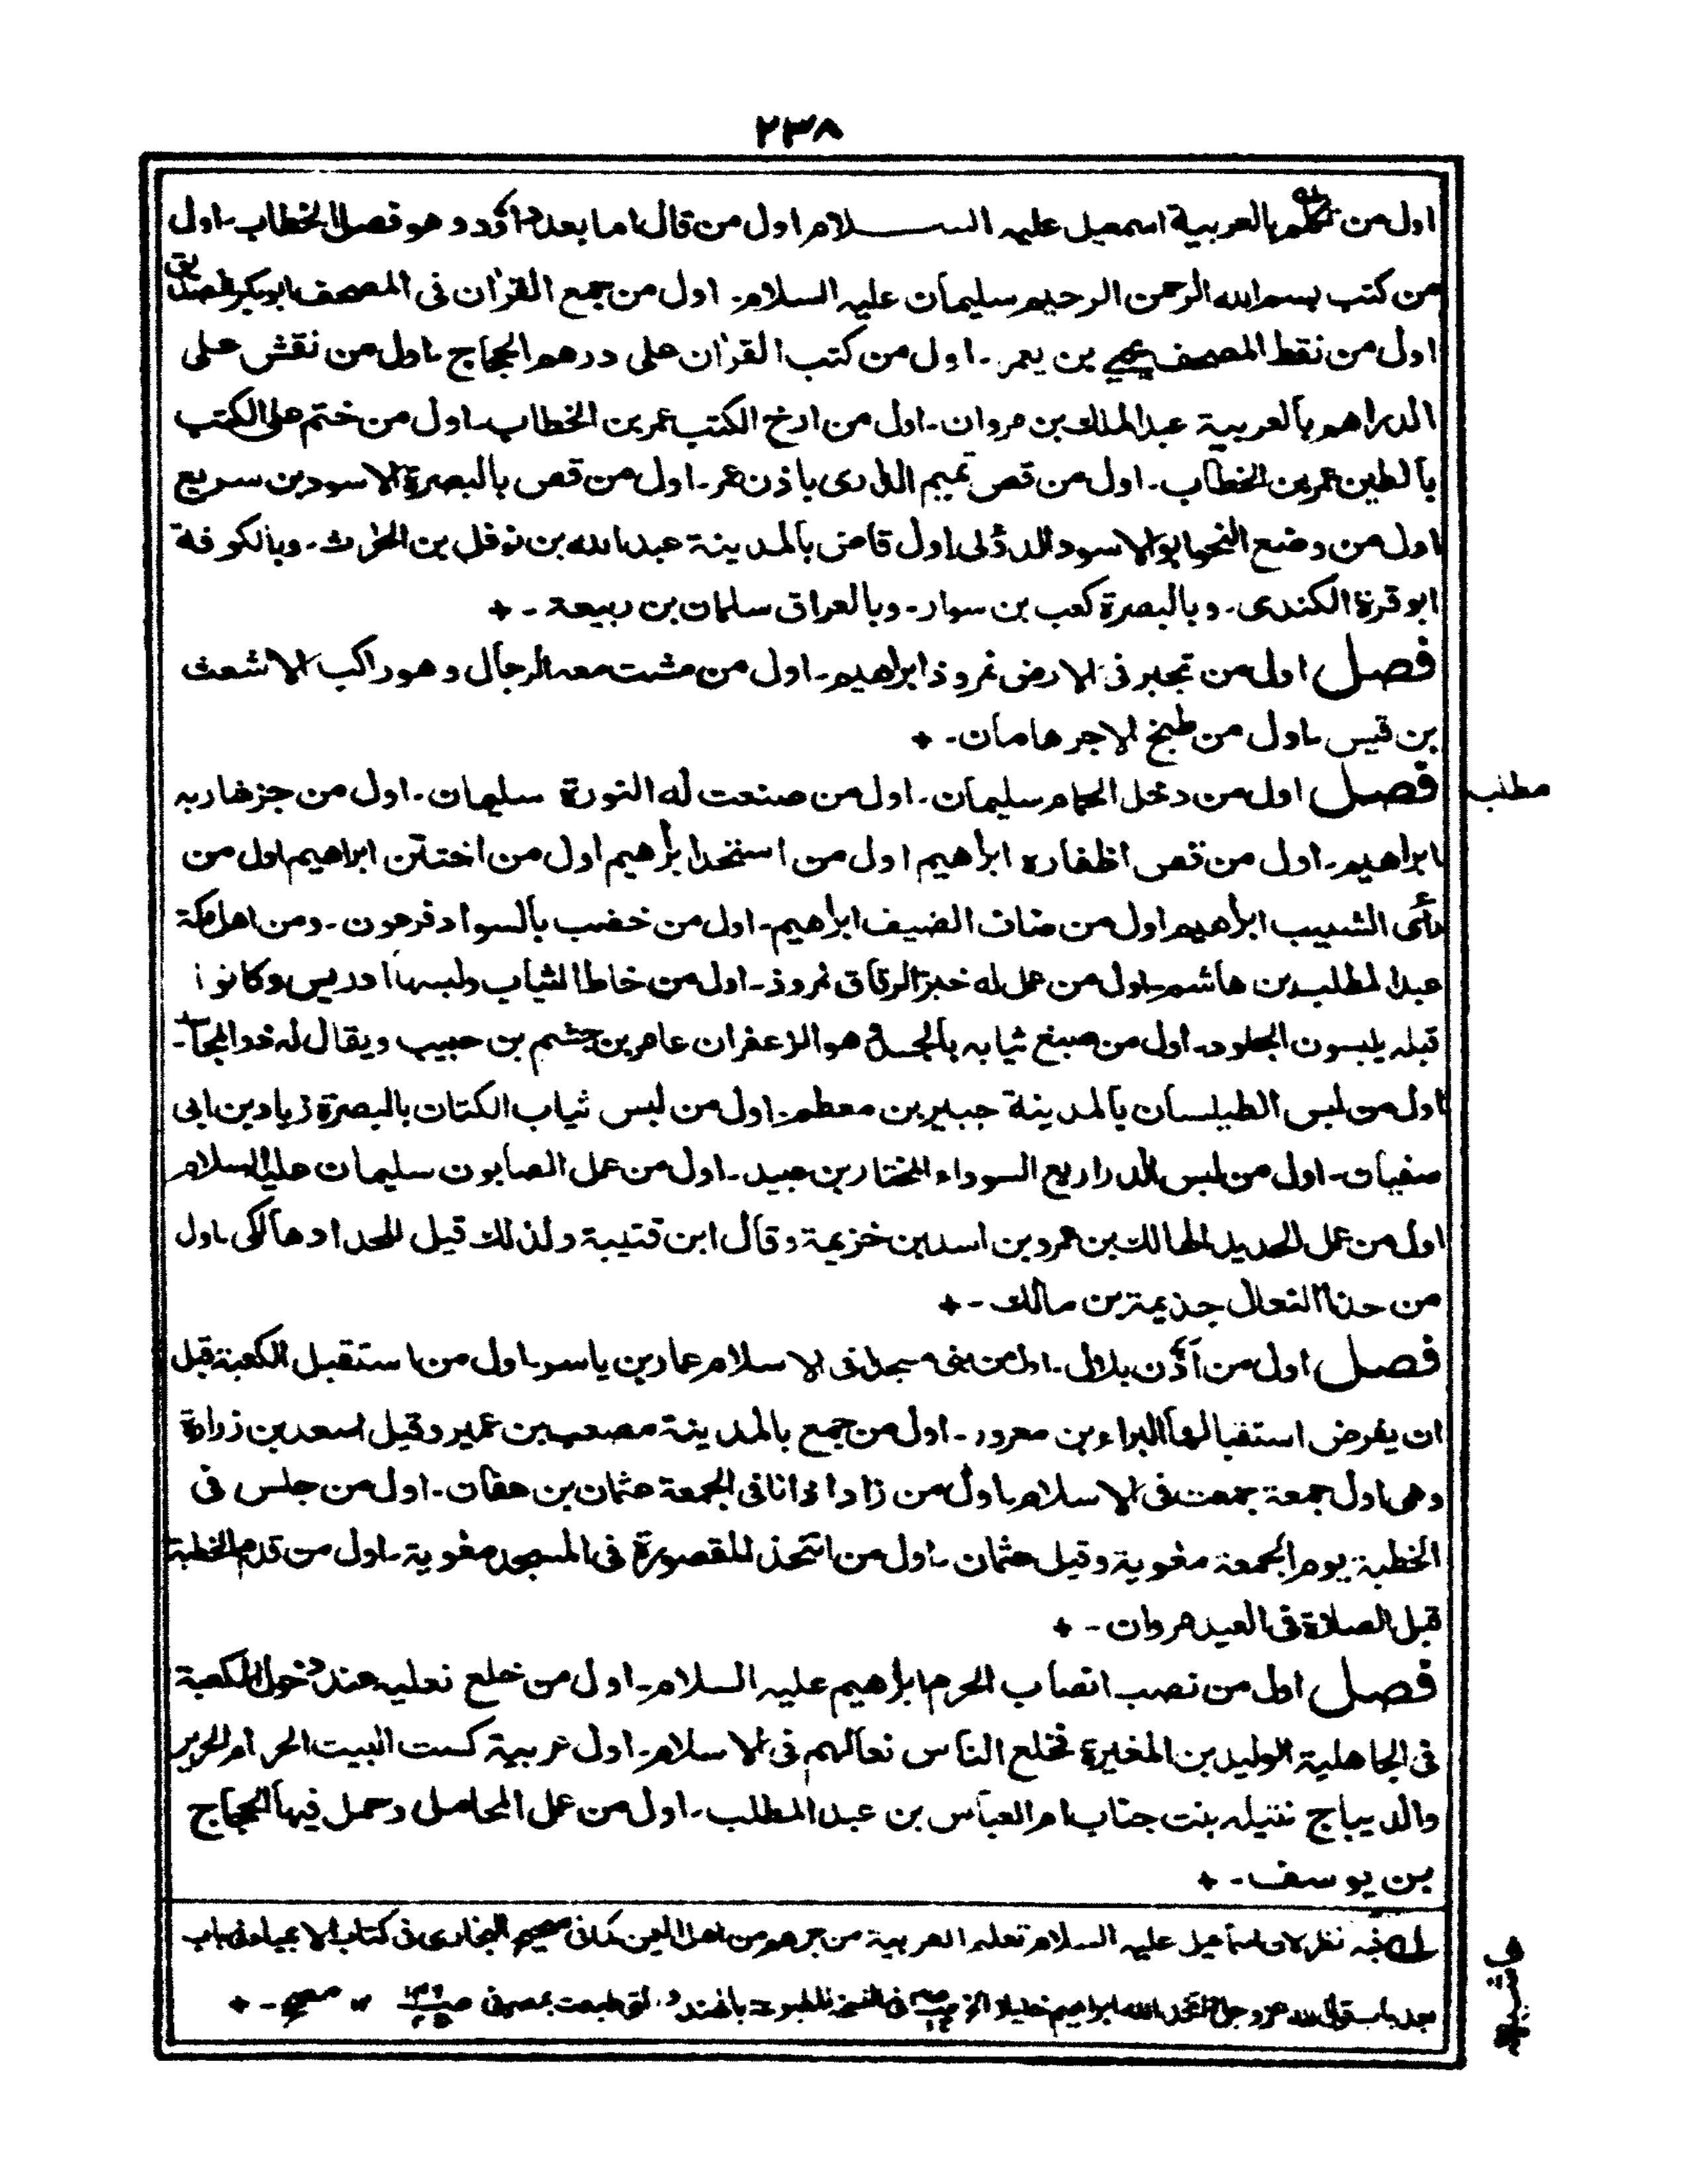 ٢٣٨
اول من تكلم بالعربية اسمعيل عليه الســـلام اول من قال اما بعد داؤد و هو فصل الخطاب۔ اول
من كتب بسم الله الرحمن الرحيم سليمان عليه السلام۔ اول من جمع القرٰان فى المصحف ابوبكر الصديق
اول من نقط المصحف يحيى بن يعمر۔ اول من كتب القرٰان على درهم الحجاج۔ اول من نقش على
الدراهم بالعربية عبد الملك بن مروان۔ اول من ارخ الكتب عمر بن الخطاب۔ اول من ختم على الكتب
بالطين عمر بن الخطاب۔ اول من قص تميم الدارى باذن عمر۔ اول من قص بالبصرة الاسود بن سريع
اول من وضع النحو ابو الاسود الدؤلى اول قاض بالمدينة عبد الله بن نوفل بن الحٰرث۔ وبالكوفة
ابو قرة الكندى۔ و بالبصرة كعب بن سوار۔ وبالعراق سلمان بن ربيعة ۔ +
فصل اول من تجبر فى الارض نمروذ ابراهيم۔ اول من مشت معه الرجال و هو راكب الاشعث
بن قيس۔ اول من طبخ الاجر هامان۔ +
مطلب
فصل اول من دخل الحمام سليمان۔ اول من صنعت له النورة سليمان۔ اول من جز شاربه
ابراهيم۔ اول من قص اظفاره ابراهيم اول من استحد ابراهيم اول من اختتن ابراهيم اول من
رأى الشيب ابراهيم اول من ضاف الضيف ابراهيم۔ اول من خضب بالسواد فرعون۔ ومن اهل مكة
عبد المطلب بن هاشم۔ اول من عمل له خبز الرقاق نمروذ۔ اول من خاط الثياب ولبسها ادريس وكانوا
قبله يلبسون الجلود۔ اول من صبغ ثيابه بالجسا و هو الزعفران عامر بن جشم بن حبيب ويقال له ذو المجاسد۔
اول من لبس الطيلسان بالمدينة جبير بن مطعم۔ اول من لبس ثياب الكتان بالبصرة زياد بن ابى
سفيان۔ اول من لبس الدراريع السوداء المختار بن عبيد۔ اول من عمل الصابون سليمان عليه السلام
اول من عمل الحديد الهالك بن عمرو بن اسد بن خزيمة وقال ابن قتيبة ولذلك قيل للحداد هالكى۔ اول
من حذا النعال جذيمة بن مالك۔ +
فصل اول من أذّن بلال۔ اول من بنى مسجدا فى الاسلام عمار بن ياسر۔ اول من استقبل الكعبة قبل
ان يفرض استقبالها البراء بن معرور۔ اول من جمع بالمدينة مصعب بن عمير وقيل اسعد بن زرارة
وهى اول جمعة جمعت فى الاسلام۔ اول من زاد اذانا فى الجمعة عثمان بن عفان۔ اول من جلس فى
الخطبة يوم الجمعة معٰوية وقيل عثمان۔ اول من اتخذ المقصورة فى المسجد معٰوية۔ اول من قدم الخطبة
قبل الصلاة فى العيد مروان۔ +
فصل اول من نصب انصاب الحرم ابراهيم عليه السلام۔ اول من خلع نعليه عند دخول الكعبة
فى الجاهلية الوليد بن المغيرة فخلع الناس نعالهم فى الاسلام۔ اول عربية كست البيت الحرام الحرير
والديباج نتيله بنت جناب ام العباس بن عبد المطلب۔ اول من عمل المحامل وحمل فيها الحجاج
بن يوسف۔ +
فيه نظر لان اسماعيل عليه السلام تعلم العربية من جرهم من اهل اليمن كما فى صحيح البخارى فى كتاب الانبياء فى باب
بعد باب قول الله عز و جل واتخذ الله ابراهيم خليلا الخ فى النسخة المطبوعة بالهند و التى طبعت بمصر فى ١٢ مصحح۔ +